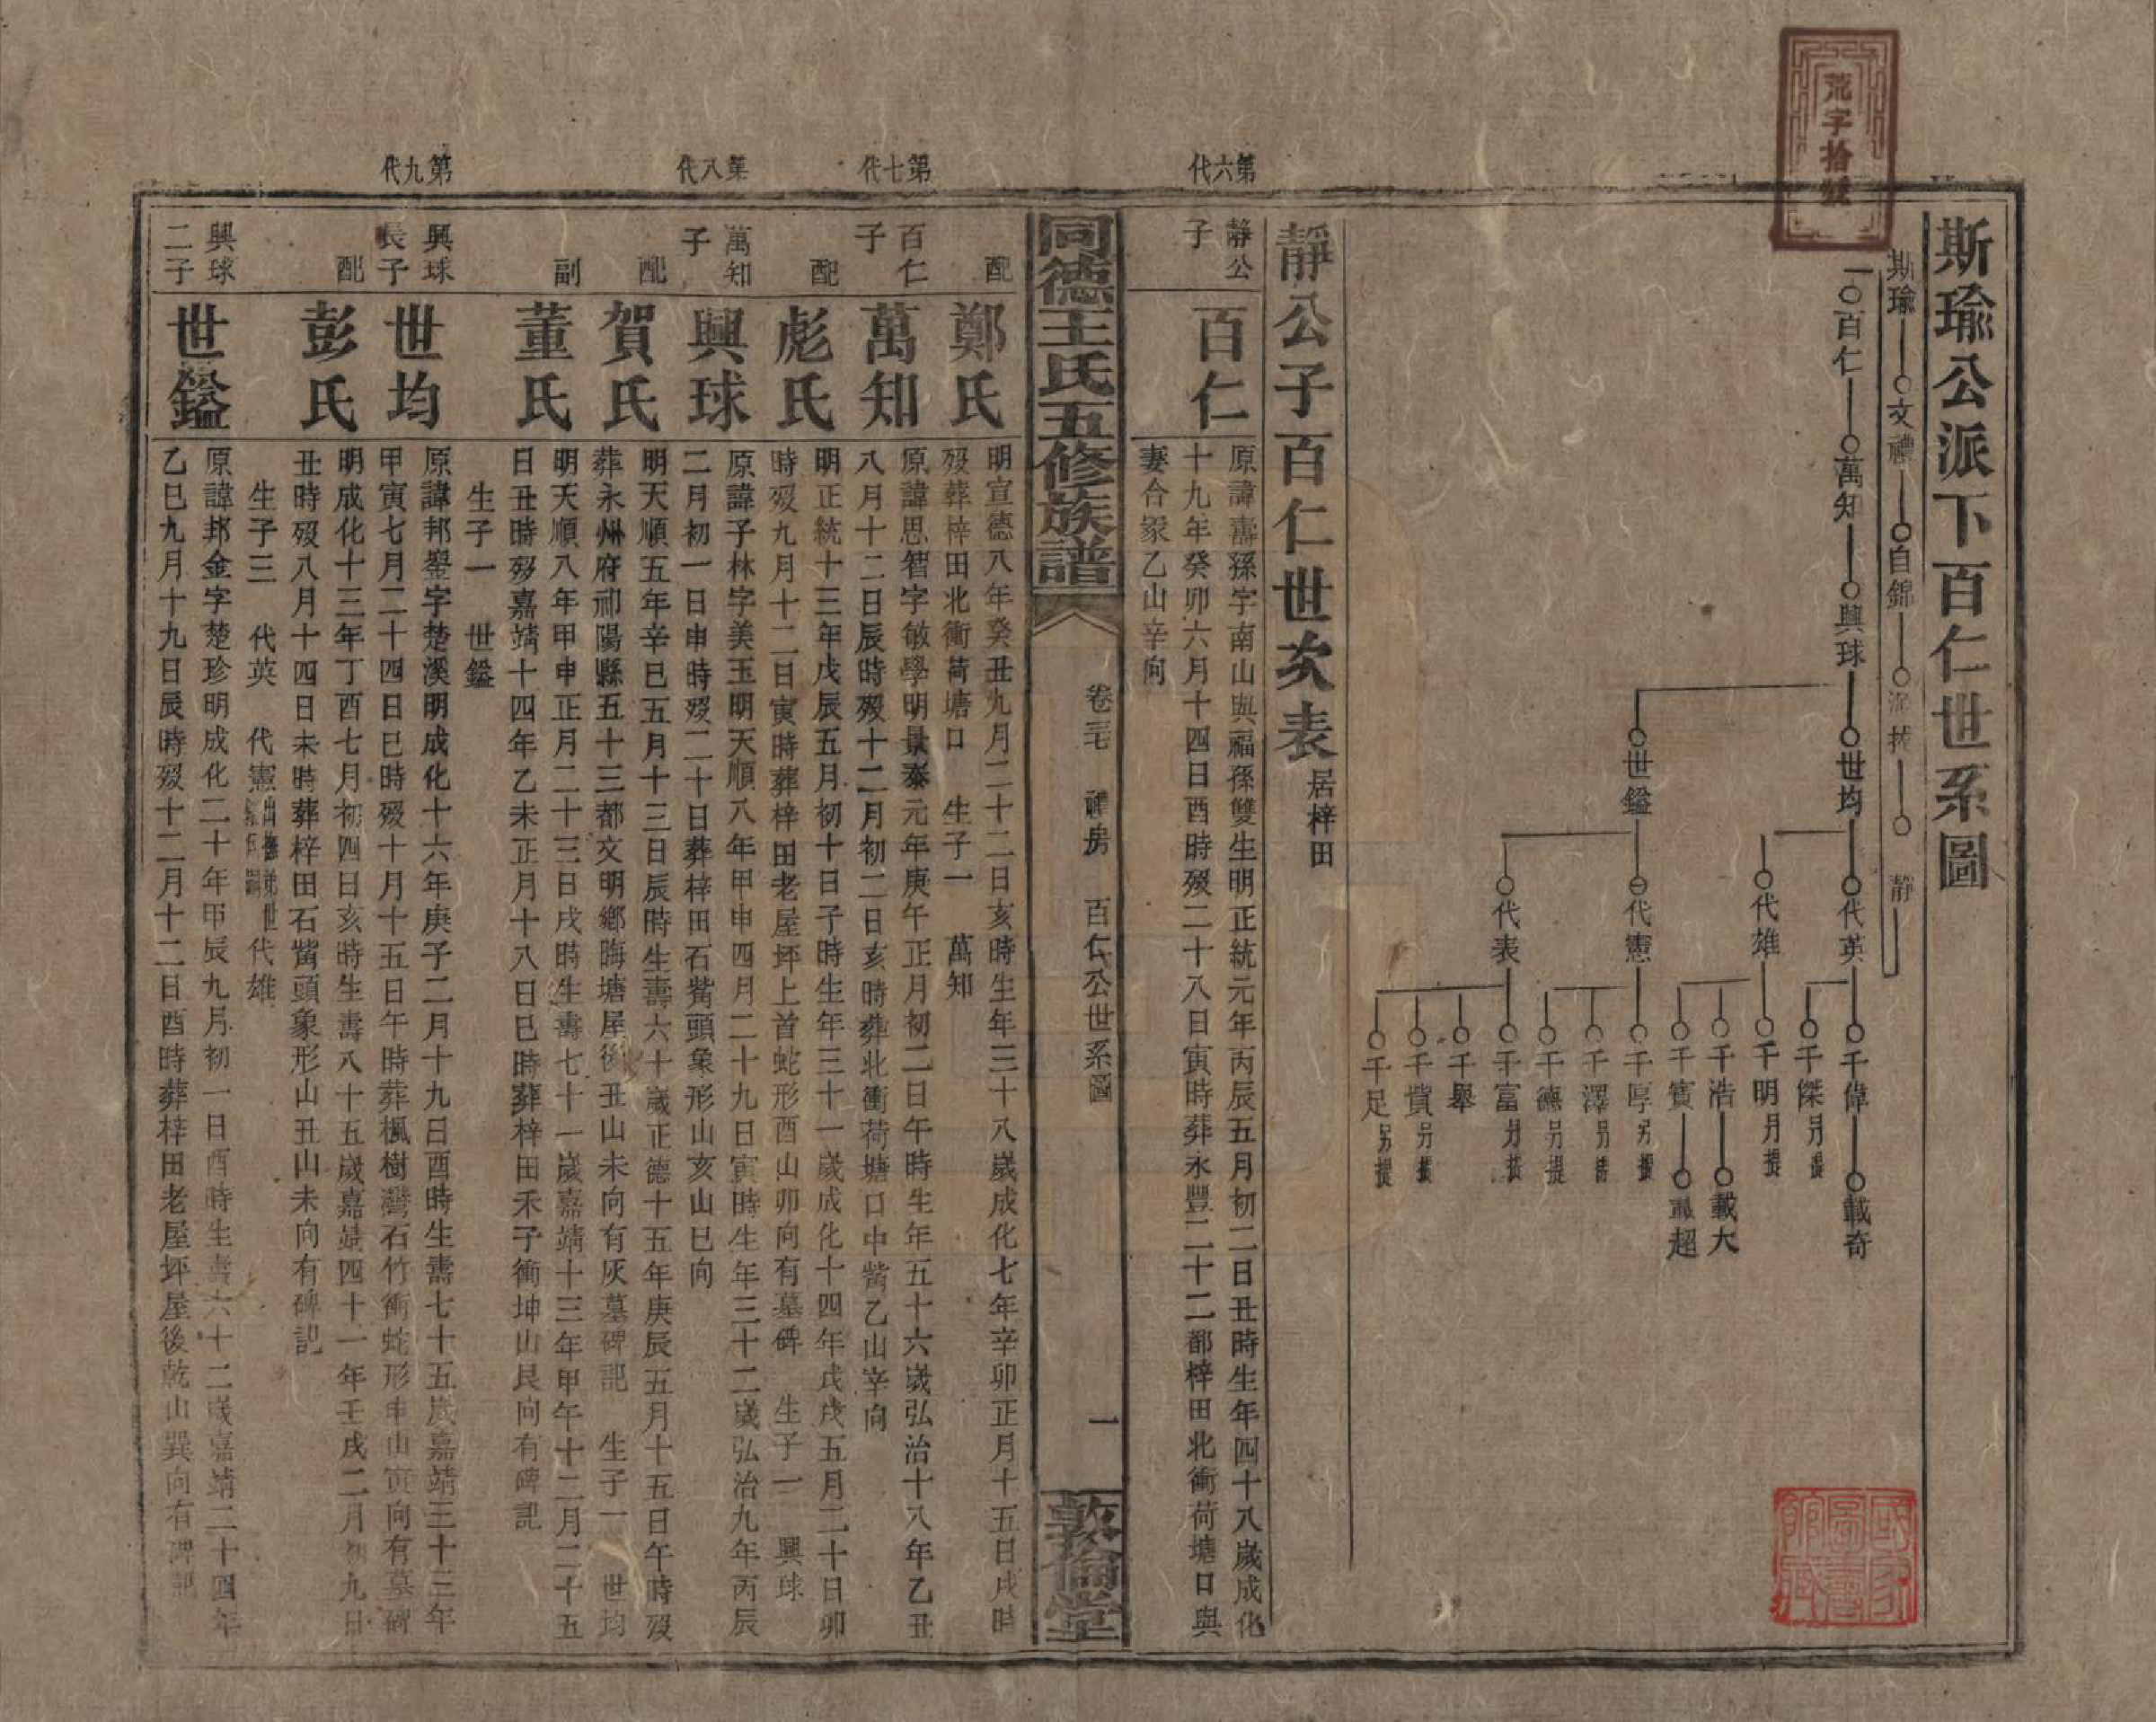 荒字拾號
斯瑜公派下百仁世系圖
斯瑜 文禮 自錦 靜
百仁 萬知 興球 世均 代英 千偉 載奇
千傑另提
代雄 千明另提
千浩 載大
千賓 載超
世鎰 代憲 千厚另提
千澤另提
千德另提
代表 千富另提
千舉
千貲另提
千足另提
靜公子百仁世次表 居梓田
第六代
靜公子 百仁
原諱壽孫字南山與福孫雙生明正統元年丙辰五月初二日丑時生年四十八歲成化
十九年癸卯六月十四日酉時歿二十八日寅時葬永豐二十二都梓田北衝荷塘口與
妻合冢乙山辛向
同德王氏五修族譜
卷三 禮房 百仁公世系圖 一
敦倫堂
配 鄭氏
明宣德八年癸丑九月二十二日亥時生年三十八歲成化七年辛卯正月十五日戌時
歿葬梓田北衝荷塘口 生子一 萬知
第七代
百仁子 萬知
原諱思智字敏學明景泰元年庚午正月初二日午時生年五十六歲弘治十八年乙丑
八月十二日辰時歿十二月初二日亥時葬北衝荷塘口中嘴乙山辛向
配 彪氏
明正統十三年戊辰五月初十日子時生年三十一歲成化十四年戊戌五月二十日卯
時歿九月十二日寅時葬梓田老屋坪上首蛇形酉山卯向有墓碑 生子一 興球
第八代
萬知子 興球
原諱子林字美玉明天順八年甲申四月二十九日寅時生年三十二歲弘治九年丙辰
二月初一日申時歿二十日葬梓田石嘴頭象形山亥山巳向
配 賀氏
明天順五年辛巳五月十三日辰時生壽六十歲正德十五年庚辰五月十五日午時歿
葬永州府祁陽縣五十三都文明鄉晦塘屋後丑山未向有灰墓碑記 生子一 世均
副 董氏
明天順八年甲申正月二十三日戌時生壽七十一歲嘉靖十三年甲午十二月二十五
日丑時歿嘉靖十四年乙未正月十八日巳時葬梓田禾子衝坤山艮向有碑記
生子一 世鎰
第九代
興球長子 世均
原諱邦鋆字楚溪明成化十六年庚子二月十九日酉時生壽七十五歲嘉靖三十三年
甲寅七月二十四日巳時歿十月十五日午時葬楓樹灣石竹衝蛇形申山寅向有墓碑
配 彭氏
明成化十三年丁酉七月初四日亥時生壽八十五歲嘉靖四十一年壬戌二月初九日
丑時歿八月十四日未時葬梓田石嘴頭象形山丑山未向有碑記
生子三 代英 代憲 代雄
興球二子 世鎰
原諱邦金字楚珍明成化二十年甲辰九月初一日酉時生壽六十二歲嘉靖二十四年
乙巳九月十九日辰時歿十二月十二日酉時葬梓田老屋坪屋後乾山巽向有碑記
國家圖書館藏